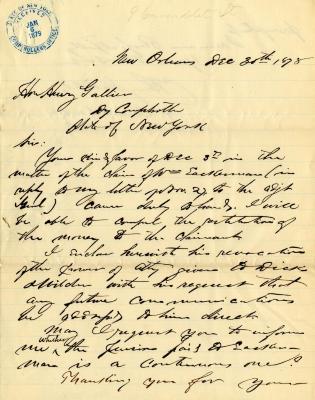 STATE OF NEW YORK
RECEIVED
JAN
6
1879
COMPTROLLER'S OFFICE
New Orleans Dec 30th 1878
Hon Henry Gallien
Dy Comptroller
State of New York
Sir:
Your favor of Dec 3d in the
matter of the claim of Wm Eastman (in
reply to my letter to the Adjt
Genl) came duly to hand. I will
be able to compel the restitution of
the money to the claimant.
I enclose herewith his revocation
of the power of Atty given to Dick
with his request that
any future communications
be addressed to him direct.
May I request you to inform
me whether the pension paid to Eastman
is a continuous one?
Thanking you for your